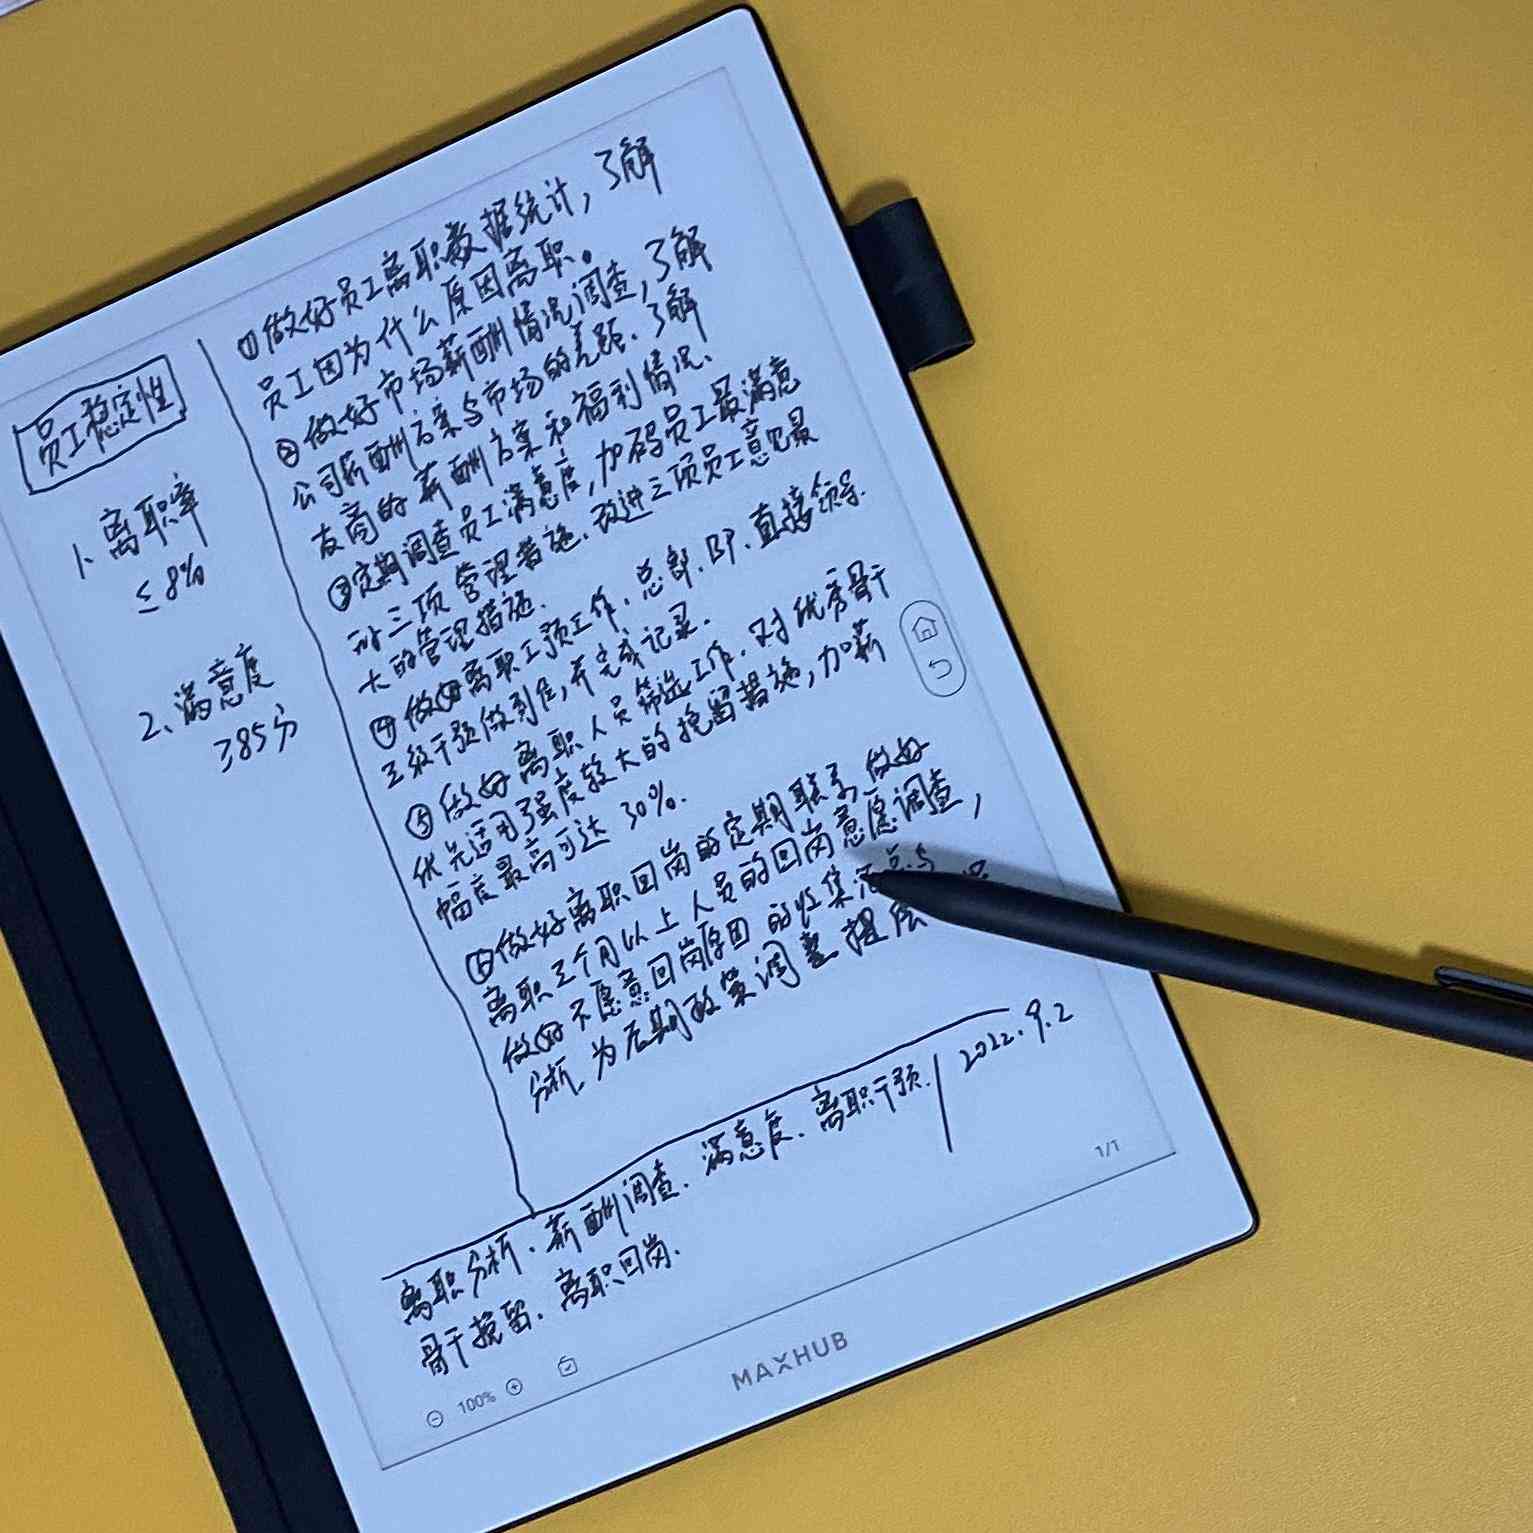 员工稳定性
1、离职率
≤8%
2、满意度
≥85分
①做好员工离职数据统计,了解
员工因为什么原因离职。
②做好市场薪酬情况调查,了解
公司薪酬方案与市场的差距、了解
友商的薪酬方案和福利情况、
③定期调查员工满意度,加码员工最满意
的三项管理措施、改进三项员工意见最
大的管理措施、
④做好离职干预工作、总部、BP、直接领导、
三级干预做到位,并完成记录、
⑤做好离职人员筛选工作、对优秀骨干
优先适用强度较大的挽留措施,加薪
幅度最高可达30%.
⑥做好离职回岗的定期联系,做好
离职三个月以上人员的回岗意愿调查,
做好不愿意回岗原因的收集
分析、为后期政策调整提
离职分析、薪酬调查、满意度、离职干预、
骨干挽留、离职回岗、
2022.9.2
1/1
100%
MAXHUB